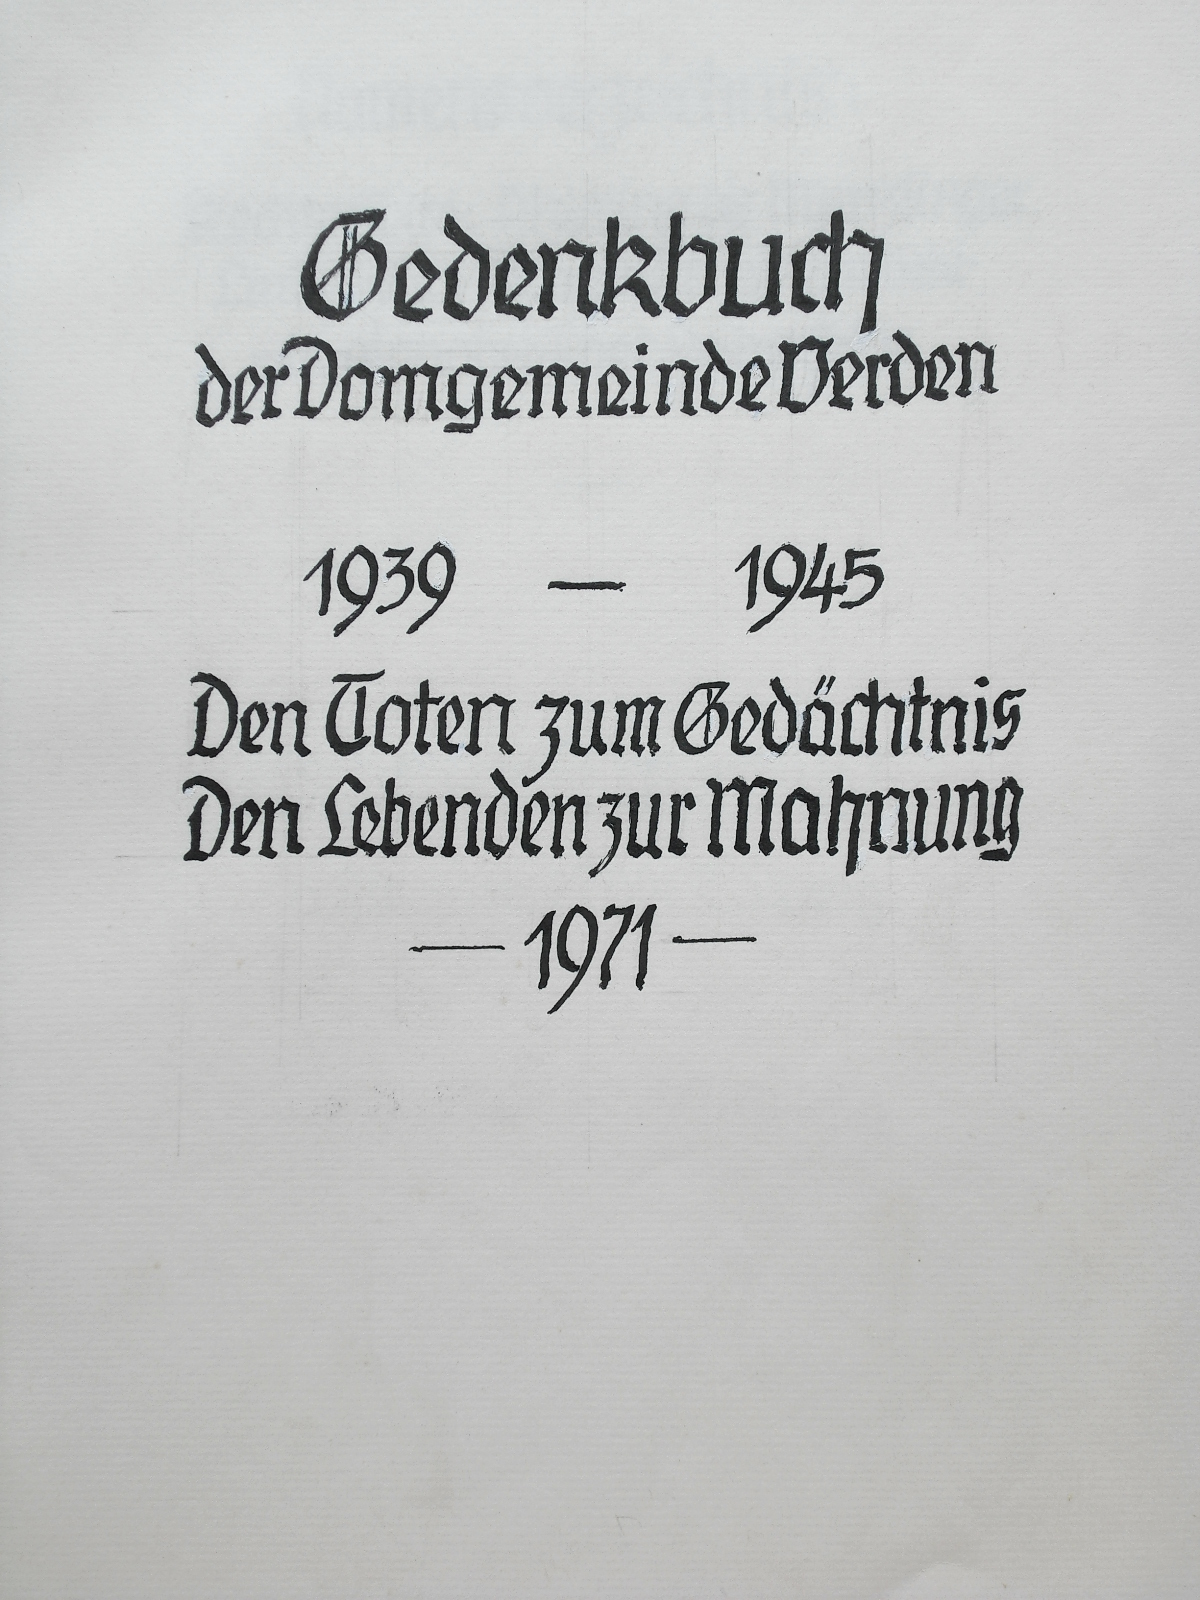 Gedenkbuch
der Domgemeinde Verden
1939 — 1945
Den Toten zum Gedächtnis
Den Lebenden zur Mahnung
— 1971 —